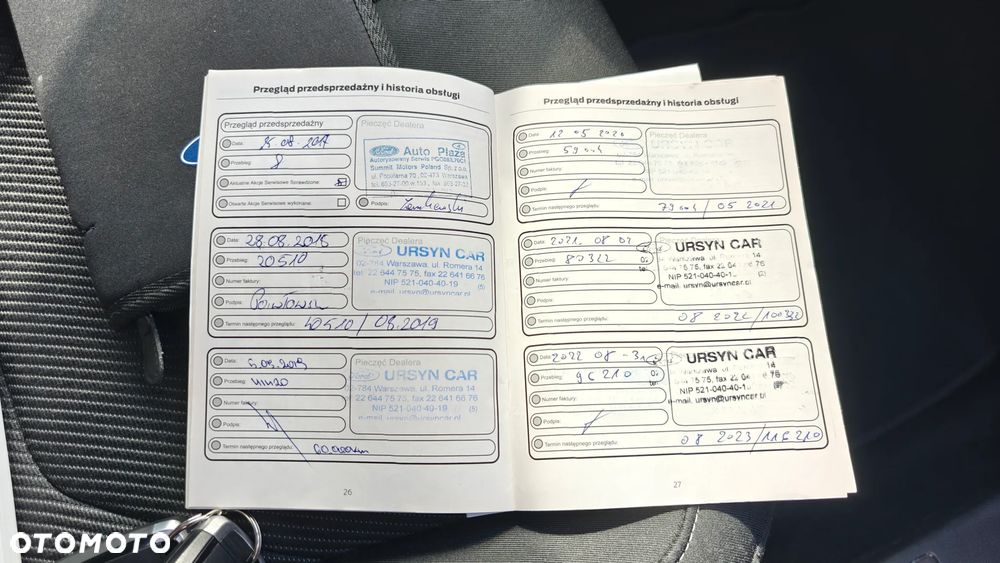 Przegląd przedsprzedażny i historia obsługi
Przegląd przedsprzedażny
Data: 25.08.2017
Przebieg: 8
Aktualne Akcje Serwisowe Sprawdzone:
Otwarte Akcje Serwisowe wykonane:
Pieczęć Dealera
Ford Auto Plaza
Autoryzowany Serwis
Summit Motors Poland Sp. z o.o.
ul. Popularna 70, 02-473 Warszawa
Podpis:
Data: 28.08.2018
Przebieg: 20510
Numer faktury:
Podpis:
Termin następnego przeglądu: 40510 / 08.2019
Pieczęć Dealera
Ford URSYN CAR
02-784 Warszawa, ul. Romera 14
tel. 22 644 75 75, fax 22 641 66 76
NIP 521-040-40-19 (5)
e-mail. ursyn@ursyncar.pl
Data: 6.09.2019
Przebieg: 41120
Numer faktury:
Podpis:
Termin następnego przeglądu:
Pieczęć Dealera
Ford URSYN CAR
02-784 Warszawa, ul. Romera 14
tel. 22 644 75 75, fax 22 641 66 76
NIP 521-040-40-19 (5)
e-mail. ursyn@ursyncar.pl
26
Przegląd przedsprzedażny i historia obsługi
Data: 12 05 2020
Przebieg: 59004
Numer faktury:
Podpis:
Termin następnego przeglądu: 79004 / 05 2021
Pieczęć Dealera
URSYN CAR
Data: 2021-08 02
Przebieg: 80322
Numer faktury:
Podpis:
Termin następnego przeglądu: 08 2022 / 100322
URSYN CAR
Warszawa, ul. Romera 14
75 75, fax 22 64 76
NIP 521-040-40-1
e-mail. ursyn@ursyncar.pl
Data: 2022 08 - 31
Przebieg: 96210
Numer faktury:
Podpis:
Termin następnego przeglądu: 08 2023 / 116210
URSYN CAR
14
75 75, fax 22 64 76
NIP 521-040-40-1
e-mail. ursyn@ursyncar.pl
27
OTOMOTO